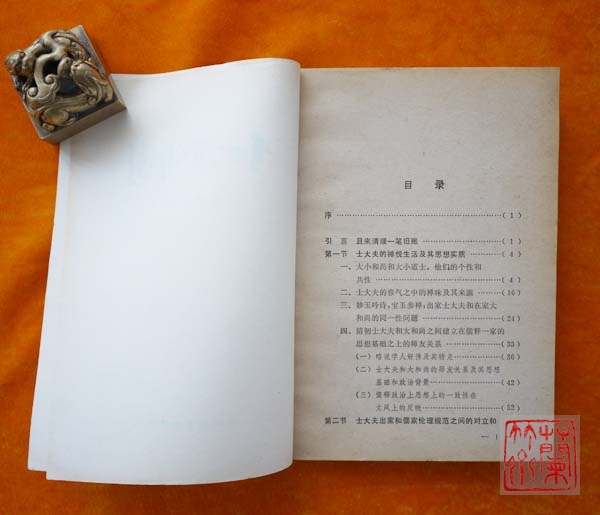 目 录
序 ……………………………………………………( 1 )
引 言 且来清理一笔旧账 ……………………………( 1 )
第一节 士大夫的禅悦生活及其思想实质 ……………( 4 )
一、大小和尚和大小道士，他们的个性和
共性 …………………………………………( 4 )
二、士大夫的雅气之中的禅味及其来源 …………( 16 )
三、妙玉吟诗，宝玉参禅；出家士大夫和在家大
和尚的同一性问题 …………………………( 24 )
四、清初士大夫和大和尚之间建立在儒释一家的
思想基础之上的师友关系 …………………( 33 )
（一）啥说学人好涉及其特点 …………………( 36 )
（二）士大夫和大和尚的师友关系及其思想
基础和政治背景 ……………………………( 42 )
（三）儒释政治上思想上的一致性在
文风上的反映 ………………………………( 52 )
第二节 士大夫出家和儒家伦理规范之间的对立和
— 1